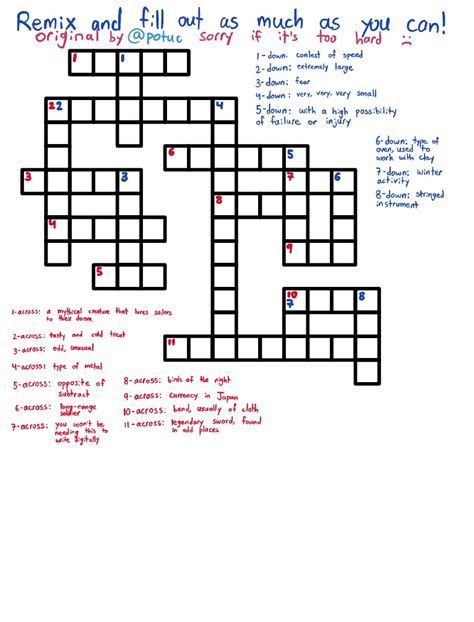 Remix and fill out as much as you can!
original by @potuc sorry if it's too hard :(
1-down: contest of speed
2-down: extremely large
3-down: fear
4-down: very, very, very small
5-down: with a high possibility
of failure or injury
6-down: type of
oven, used to
work with clay
7-down: winter
activity
8-down: stringed
instrument
1 1
2 2 4
6 5
3 3 7 6
8
4
9
5
10
7 8
11
1-across: a mythical creature that lures sailors
to their doom.
2-across: tasty and cold treat
3-across: odd, unusual
4-across: type of metal
5-across: opposite of
subtract
6-across: long-range
soldier
7-across: you won't be
needing this to
write digitally
8-across: birds of the night
9-across: currency in Japan
10-across: band, usually of cloth
11-across: legendary sword, found
in odd places